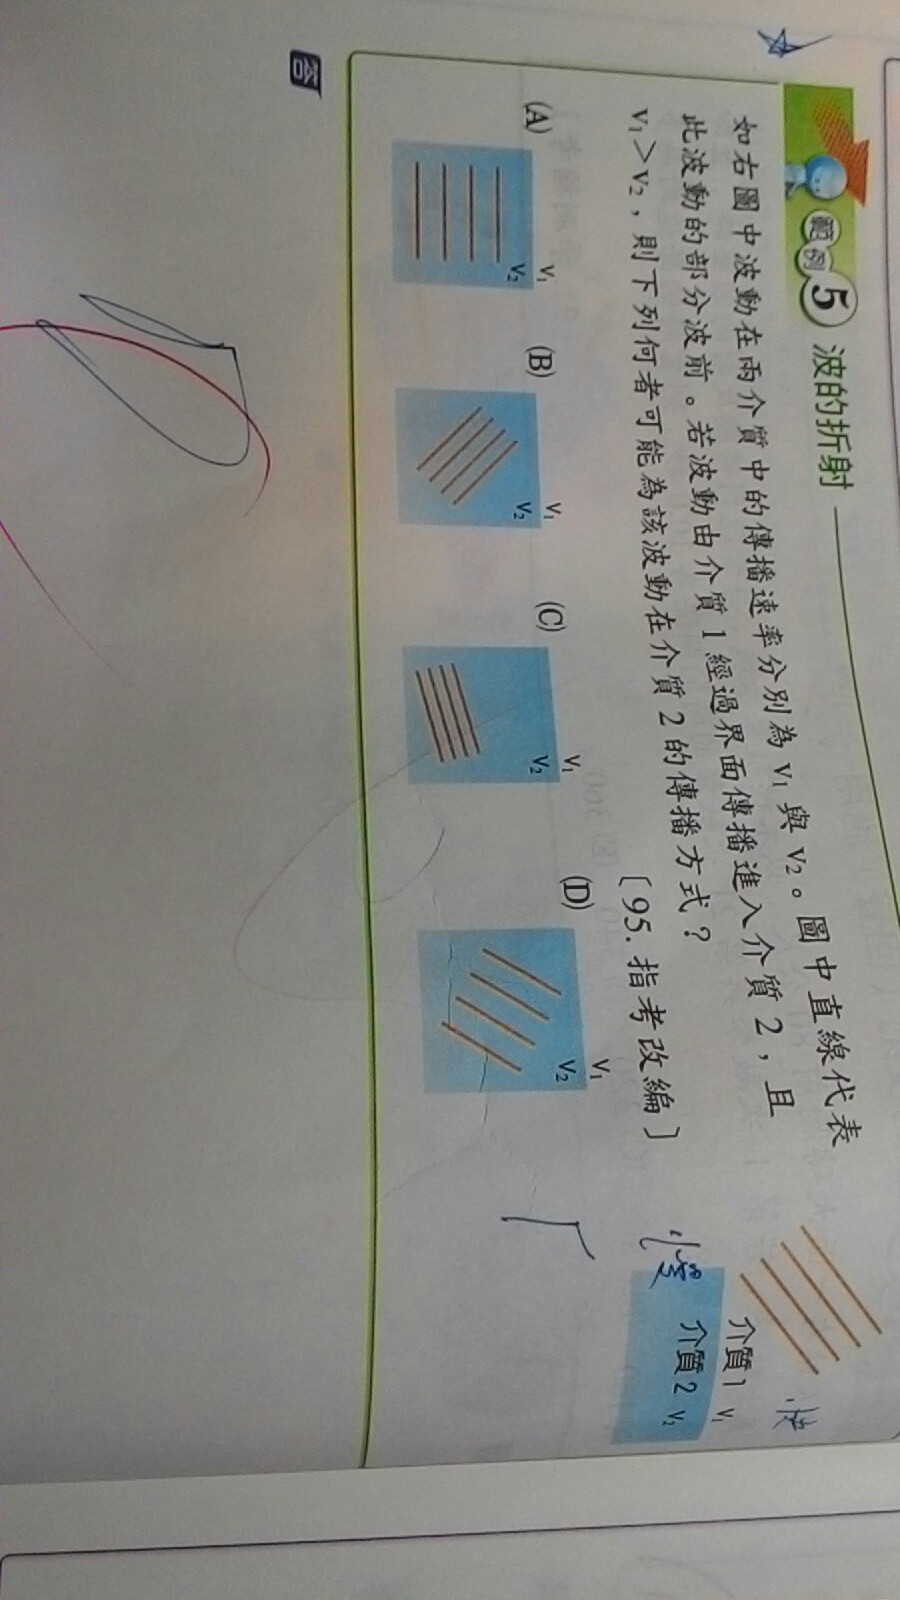 範例 5 波的折射
如右圖中波動在兩介質中的傳播速率分別為 v₁ 與 v₂。圖中直線代表
此波動的部分波前。若波動由介質 1 經過界面傳播進入介質 2，且
v₁＞v₂，則下列何者可能為該波動在介質 2 的傳播方式？
〔95. 指考改編〕
介質1 v₁
介質2 v₂
慢
快
(A) v₁ v₂
(B) v₁ v₂
(C) v₁ v₂
(D) v₁ v₂
答